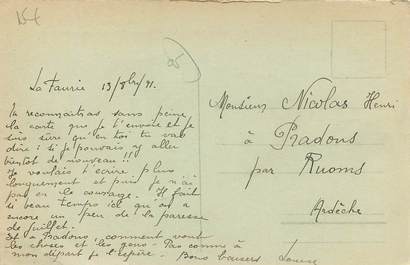 La Faurie 13/8bre/41.
Tu reconnaîtras sans peine
la carte que je t'envoie et je
suis sûre qu'en toi tu vas
dire : si je pouvais y aller
bientôt de nouveau !!
Je voulais t'écrire plus
longuement et puis je n'ai
pas eu le courage. Il fait
si beau temps ici qu'on a
encore un peu de la paresse
de juillet.
Et à Pradons, comment vont
les choses et les gens - Pas comme à
mon départ je l'espère. Bons baisers Louise
Monsieur Nicolas Henri
à Pradons
par Ruoms
Ardèche